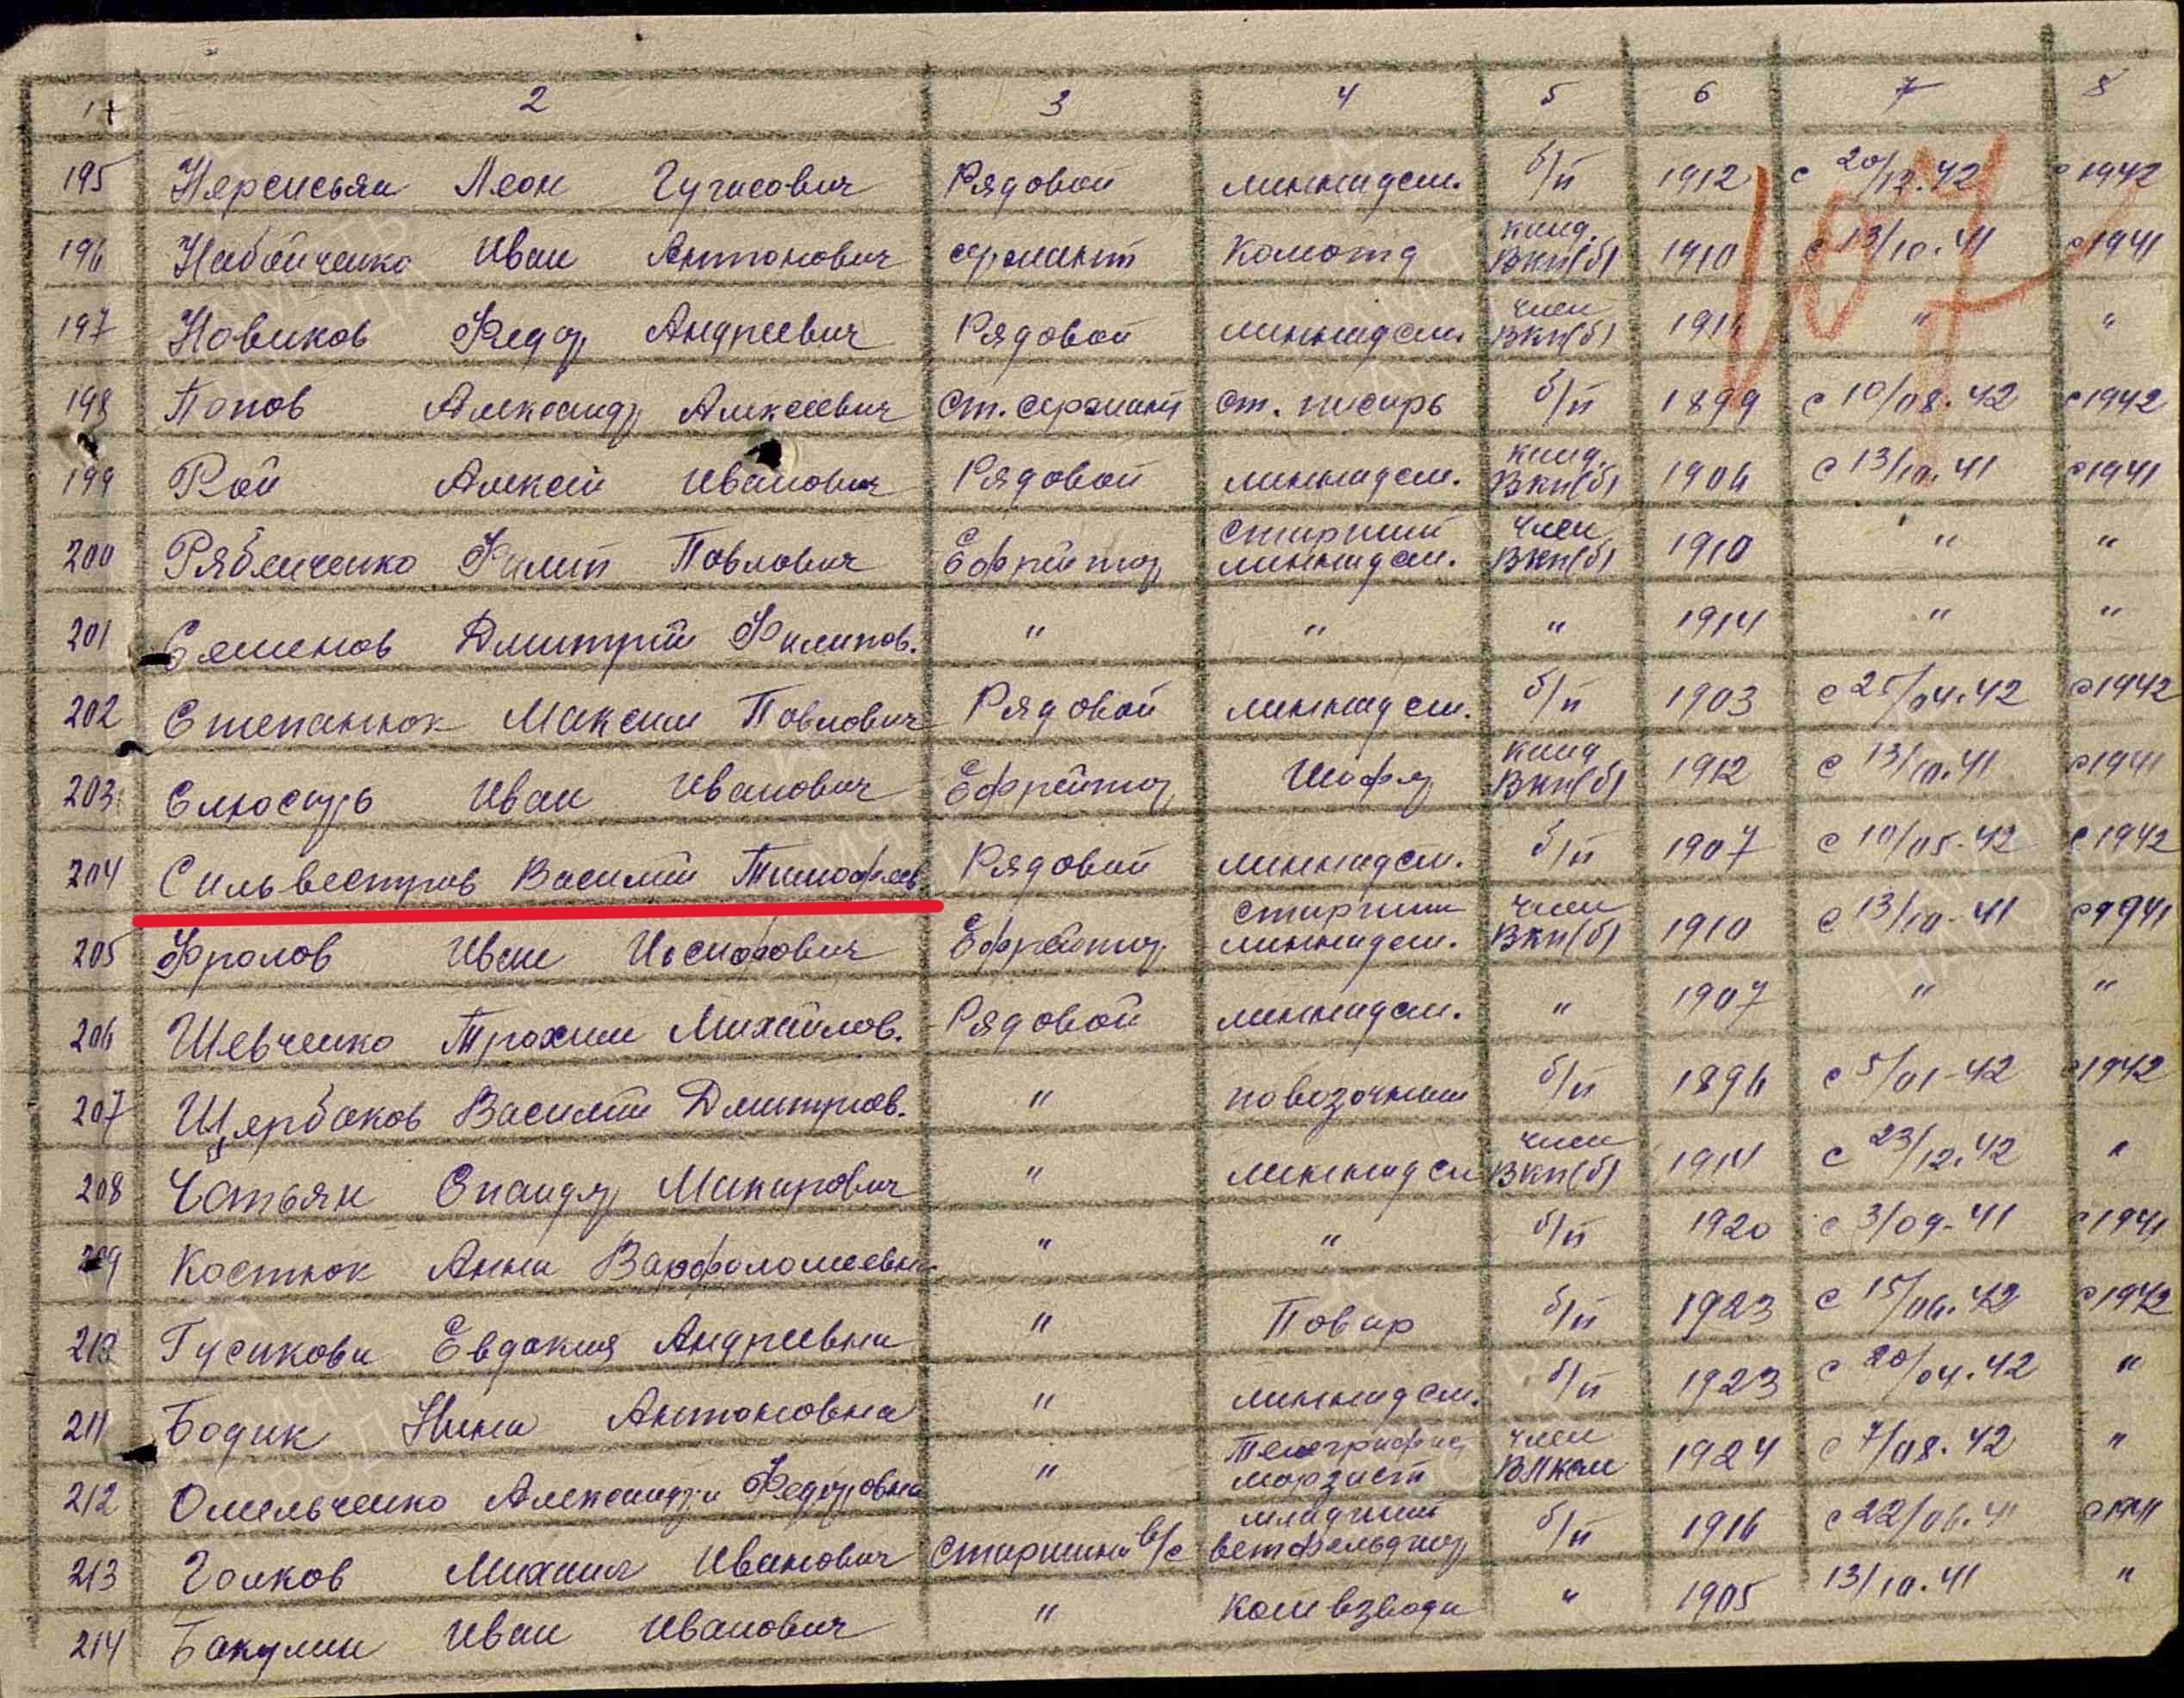 1 2 3 4 5 6 7 8
195 Нерсисьян Леон Рядовой линнадсм. б/п 1912 с 20/12.42 с 1942
196 Набойченко Иван Антонович сержант Комотд канд. ВКП(б) 1910 с 13/10.41 с 1941
197 Новиков Федор Андреевич Рядовой линнадсм. член ВКП(б) " "
198 Попов Александр Алексеевич Ст. сержант ст. писарь б/п 1899 с 10/08.42 с 1942
199 Рой Алексей Иванович Рядовой линнадсм. канд. ВКП(б) 1906 с 13/10.41 с 1941
200 Рябличенко Филип Павлович Ефрейтор старший линнадсм. член ВКП(б) 1910 " "
201 Семенов Дмитрий Филипов. " " " 1914 " "
202 Степанюк Максим Павлович Рядовой линнадсм. б/п 1903 с 25/04.42 с 1942
203 Слюсарь Иван Иванович Ефрейтор Шофер канд ВКП(б) 1912 с 13/10.41 с 1941
204 Сильвестров Василий Тимофеев Рядовой линнадсм. б/п 1907 с 10/05.42 с 1942
205 Фролов Иван Иосифович Ефрейтор старший линнадсм. член ВКП(б) 1910 с 13/10.41 с 1941
206 Шевченко Трохим Михайлов. Рядовой линнадсм. " 1907 " "
207 Щербаков Василий Дмитриев. " повозочный б/п 1896 с 5/01-42 с 1942
208 Макарович " линнадсм член ВКП(б) 1914 с 23/12.42 "
209 Костюк Анна Варфоломеевн. " " б/п 1920 с 3/09-41 с 1941
Гусакова Евдокия Андреевна " Повар б/п 1923 с 15/06.42 с 1942
211 Бодик Нина Антоновна " линнадсм. б/п 1923 с 20/04.42 "
212 Омельченко Александра Федоровна " Телеграфист морзист член ВЛКСМ 1924 с 7/08.42 "
213 Голков Михаил Иванович Старшина в/с младший ветфельдшер б/п 1916 с 22/06.41 с 1941
214 Бакулин Иван Иванович " Комвзвода " 1905 13/10.41 "